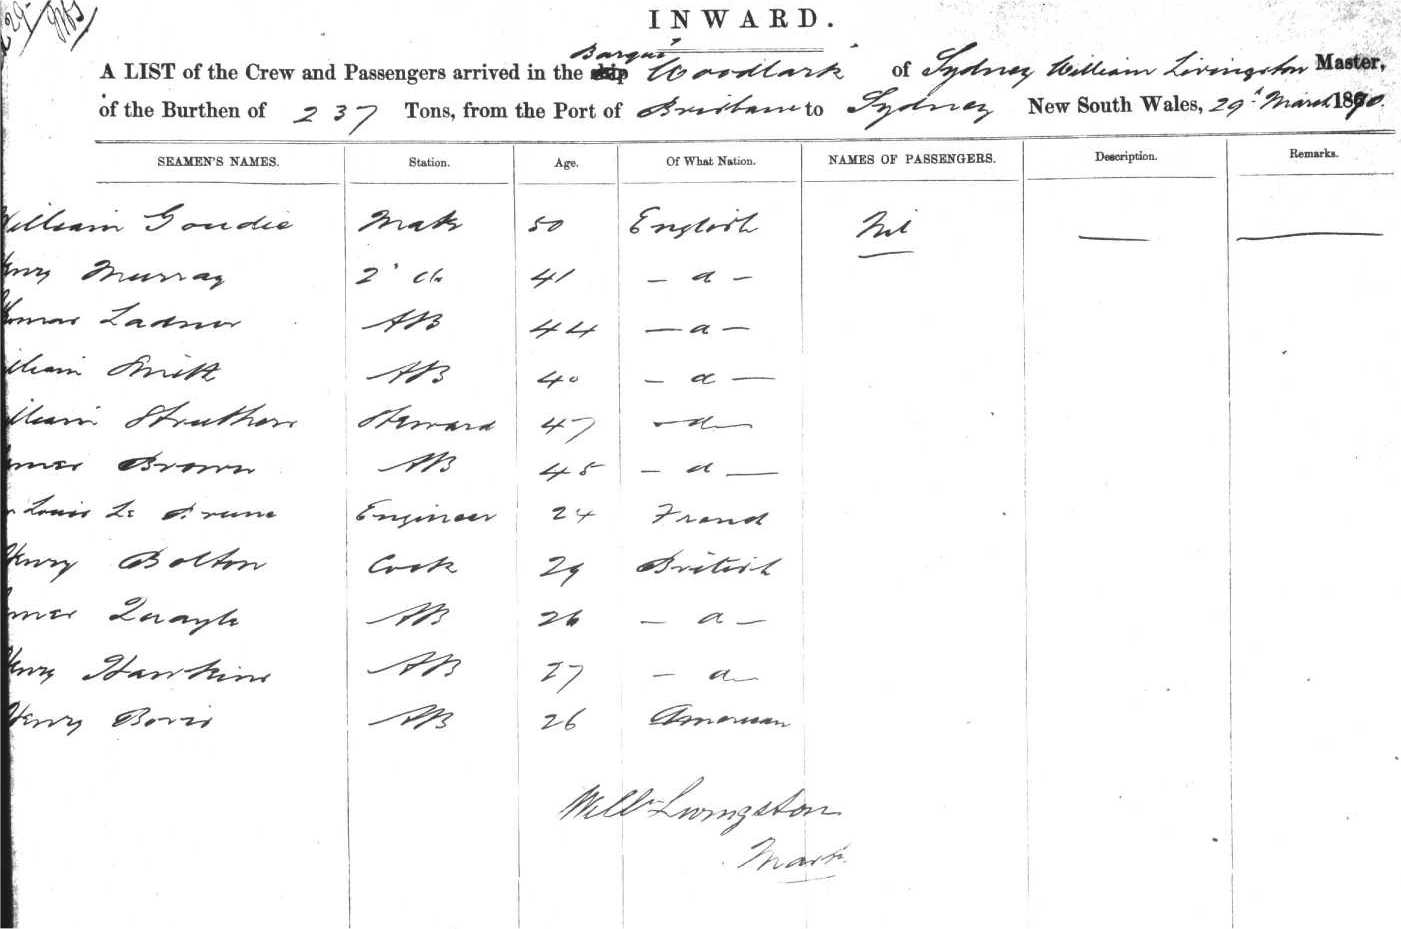 29
INWARD.
Barque
A LIST of the Crew and Passengers arrived in the ship "Woodlark" of Sydney William Livingston Master,
of the Burthen of 237 Tons, from the Port of Brisbane to Sydney New South Wales, 29 March 1870.
SEAMEN'S NAMES. Station. Age. Of What Nation. NAMES OF PASSENGERS. Description. Remarks.
William Goudie Mate 50 English Nil — —
Henry Murray 2 41 — d —
Thomas Ladner AB 44 — d —
William Smith AB 40 — d —
William Struthers Steward 47 — d —
James Brown AB 45 — d —
Louis Le Engineer 24 French
Henry Bolton Cook 29 British
James Quayle AB 26 — d —
Henry Hawkins AB 27 — d —
Henry AB 26 American
Willm Livingston
Master